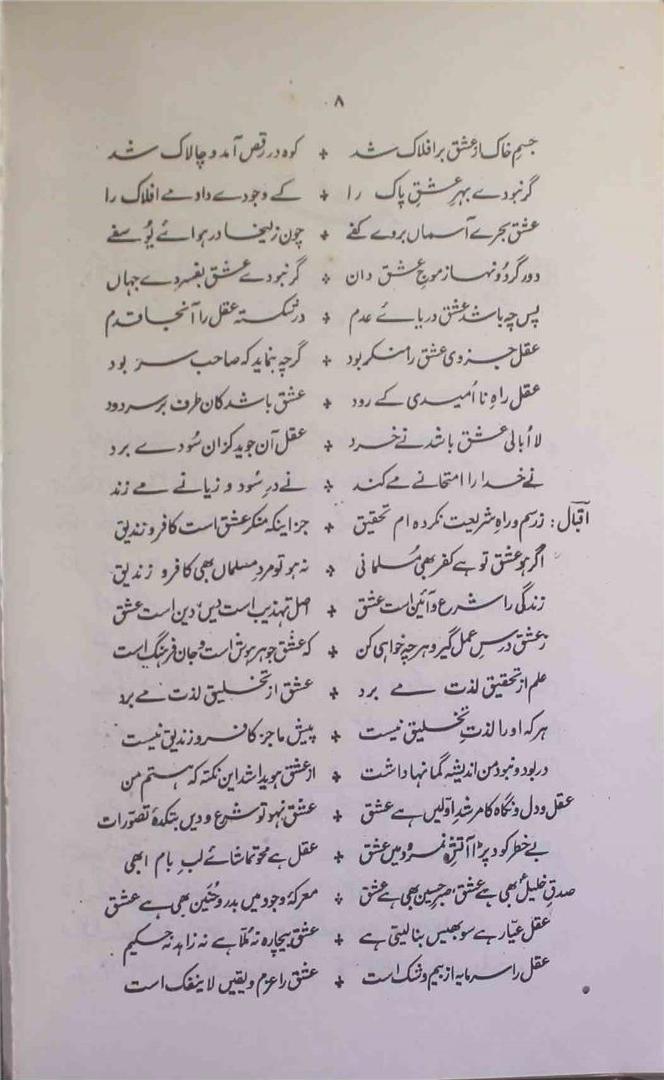 ۸
جسمِ خاک از عشق بر افلاک شد + کوہ در رقص آمد و چالاک شد
گر نبودے بہر عشقِ پاک را + کے وجودے دادمے افلاک را
عشق بحرے آسماں بروے کفے + چون زلیخا در ہوائے یُوسفے
دورِ گردُونہا ز موجِ عشق دان + گر نبودے عشق بفسردے جہاں
پس چہ باشد عشق دریائے عدم + در شکستہ عقل را آنجا قدم
عقلِ جزوی عشق را منکر بود + گرچہ بنماید کہ صاحب سر بود
عقل راہِ نا اُمیدی کے رود + عشق باشد کان طرف بر سر دود
لا اُبالی عشق باشد نے خرد + عقل آن جوید کزان سُودے برد
نے خدا را امتحانے مے کند + نے درِ سُود و زیانے مے زند
اقبال: ز رسم و راہِ شریعت نکردہ ام تحقیق + جز اینکہ منکرِ عشق است کافر و زندیق
اگر ہو عشق تو ہے کفر بھی مُسلمانی + نہ ہو تو مردِ مسلماں بھی کافر و زندیق
زندگی را شرع و آئین است عشق + اصل تہذیب است دیں، دین است عشق
ز عشق درسِ عمل گیر و ہرچہ خواہی کن + کہ عشق جوہرِ ہوش است و جان فرہنگ است
علم از تحقیق لذت مے برد + عشق از تخلیق لذت مے برد
ہر کہ او را لذتِ تخلیق نیست + پیش ما جز کافر و زندیق نیست
در بود و نبود من اندیشہ گمانہا داشت + از عشق ہویدا شد این نکتہ کہ ہستم من
عقل و دل و نگاہ کا مرشدِ اولیں ہے عشق + عشق نہ ہو تو شرع و دیں بتکدۂ تصوّرات
بے خطر کود پڑا آتشِ نمرود میں عشق + عقل ہے محوِ تماشائے لبِ بام ابھی
صدقِ خلیلؑ بھی ہے عشق، صبرِ حسین بھی ہے عشق + معرکۂ وجود میں بدر و حُنین بھی ہے عشق
عقل عیّار ہے سو بھیس بنا لیتی ہے + عشق بیچارہ نہ مُلّا ہے نہ زاہد نہ حکیم
عقل را سرمایہ از بیم و شک است + عشق را عزم و یقیں لاینفک است